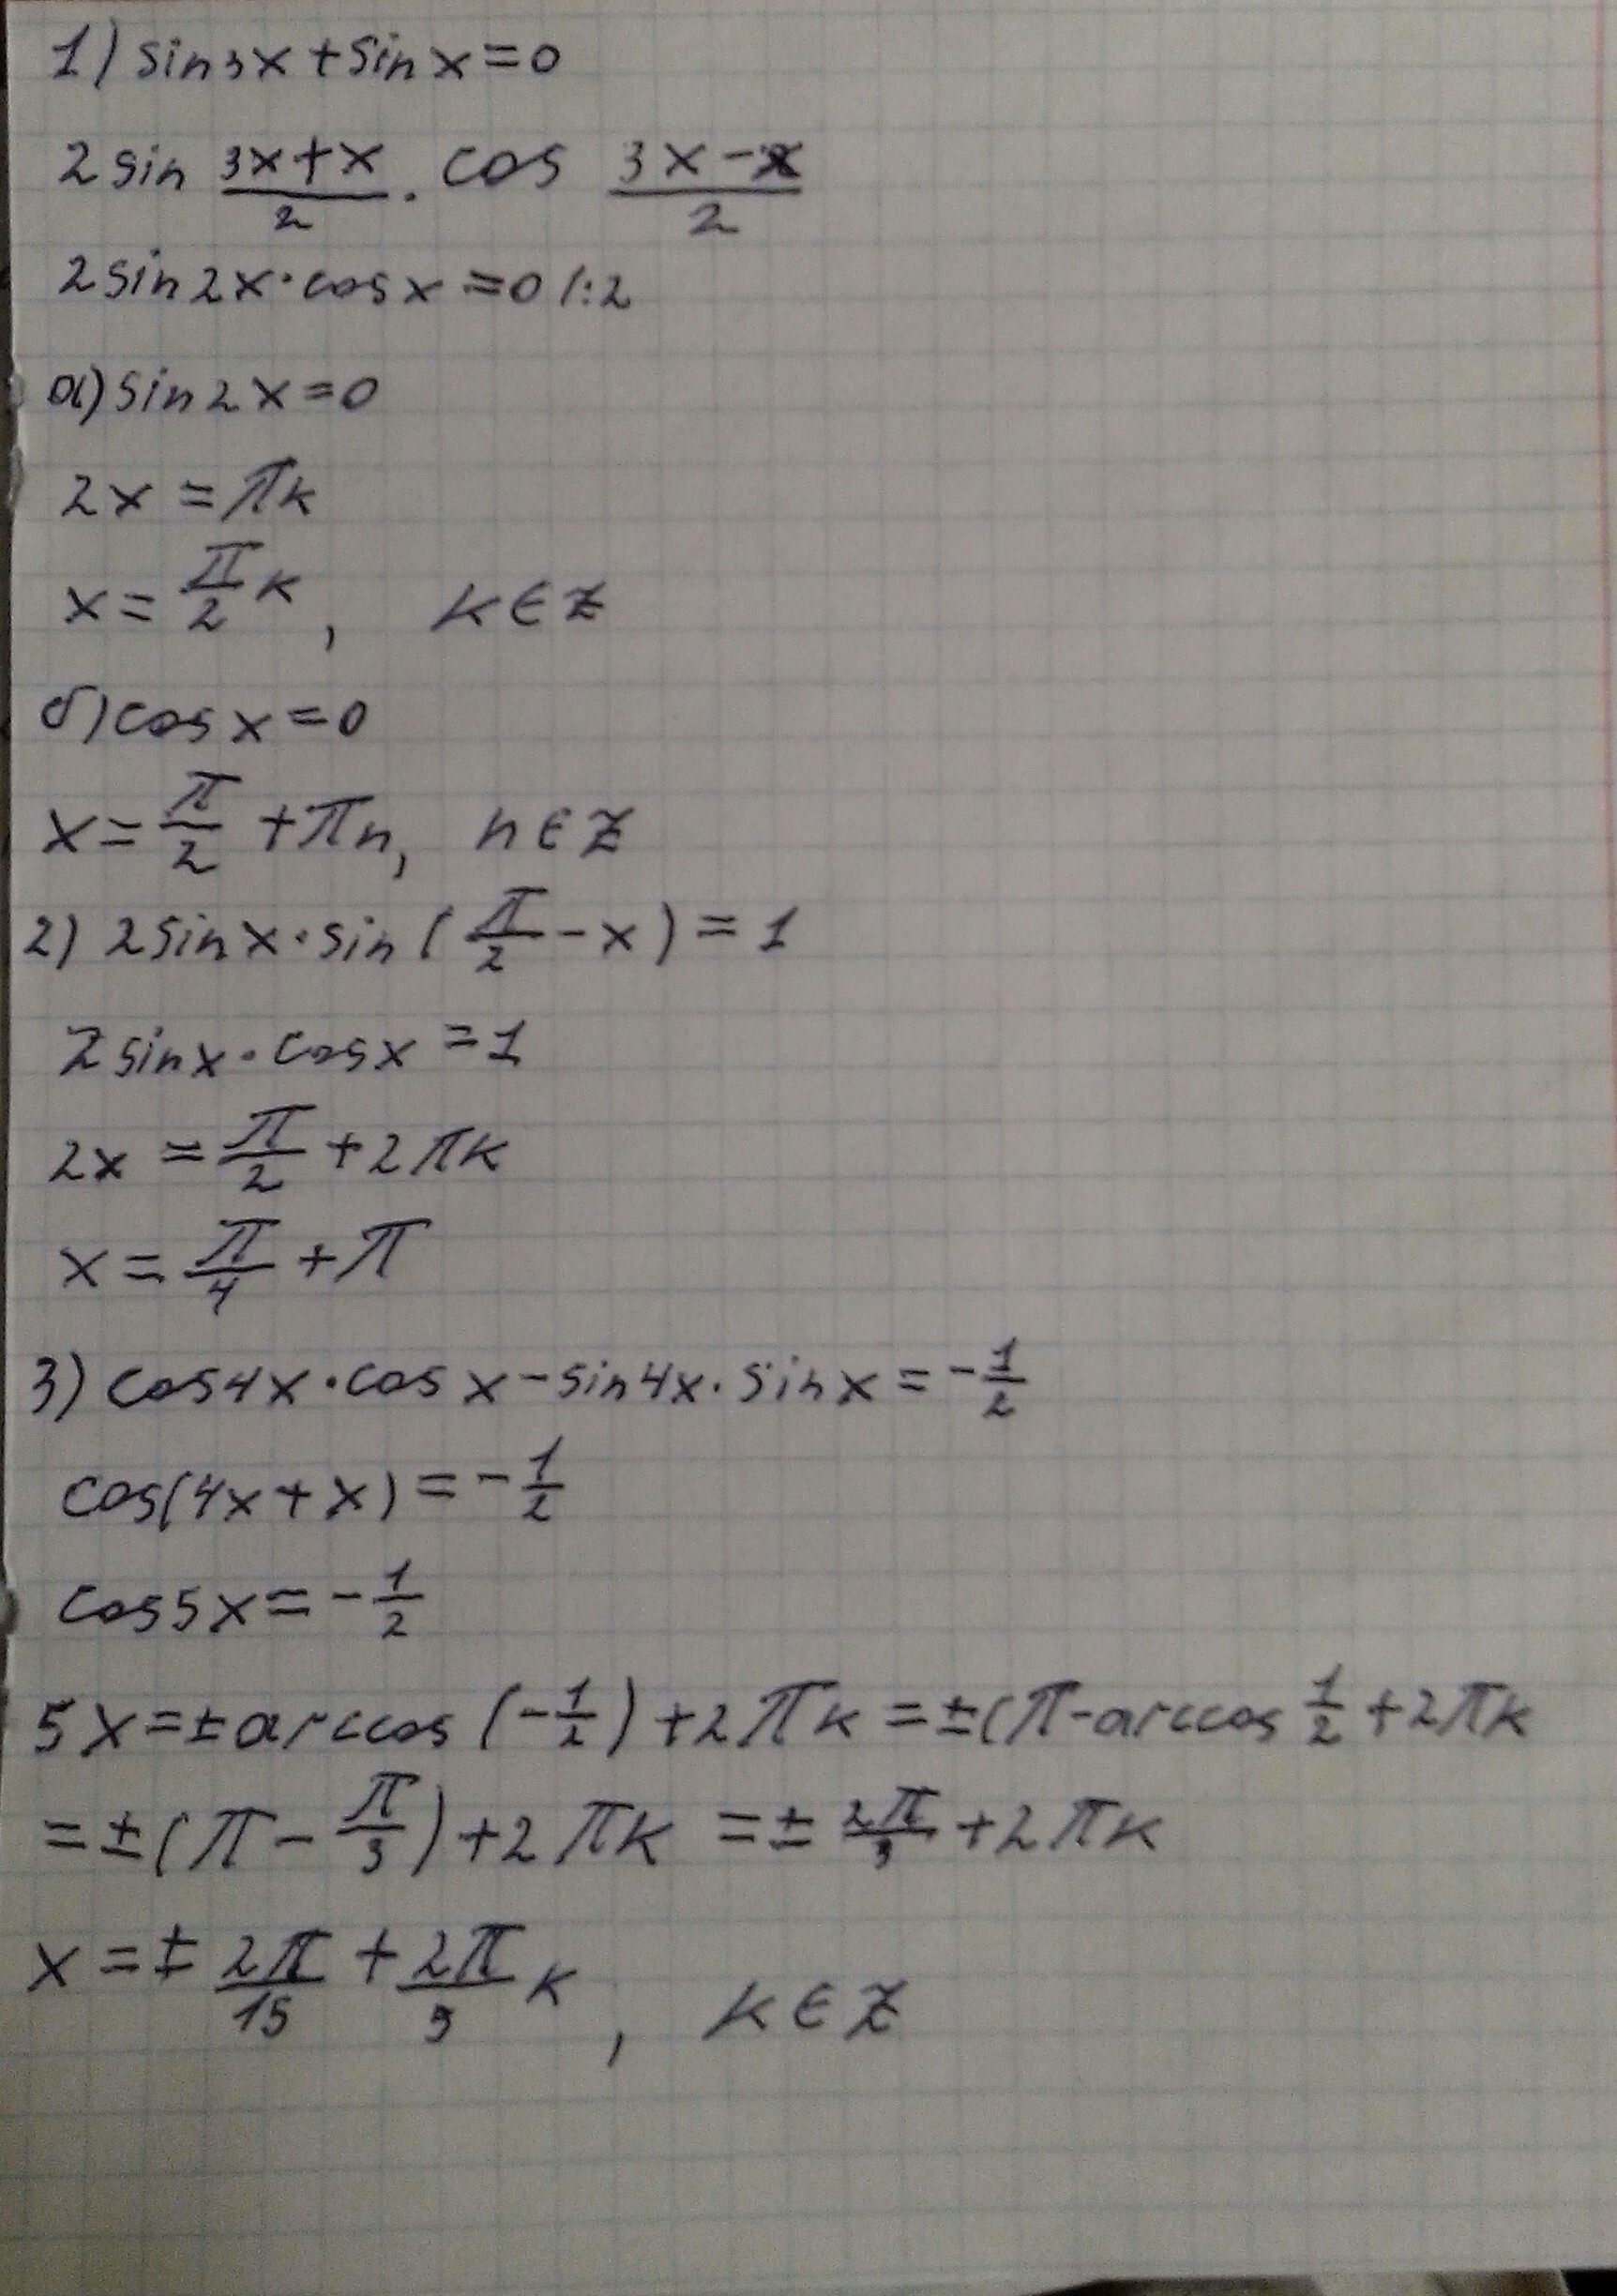 1) sin3x + sin x = 0
2 sin (3x+x)/2 · cos (3x-x)/2
2 sin 2x · cos x = 0 |:2
а) sin 2x = 0
2x = πk
x = π/2 k, k ∈ Z
б) cos x = 0
x = π/2 + πn, n ∈ Z
2) 2 sin x · sin (π/2 - x) = 1
2 sin x · cos x = 1
2x = π/2 + 2πk
x = π/4 + π
3) cos 4x · cos x - sin 4x · sin x = -1/2
cos(4x + x) = -1/2
cos 5x = -1/2
5x = ± arccos (-1/2) + 2πk = ±(π - arccos 1/2 + 2πk
= ±(π - π/3) + 2πk = ± 2π/3 + 2πk
x = ± 2π/15 + 2π/5 k, k ∈ Z